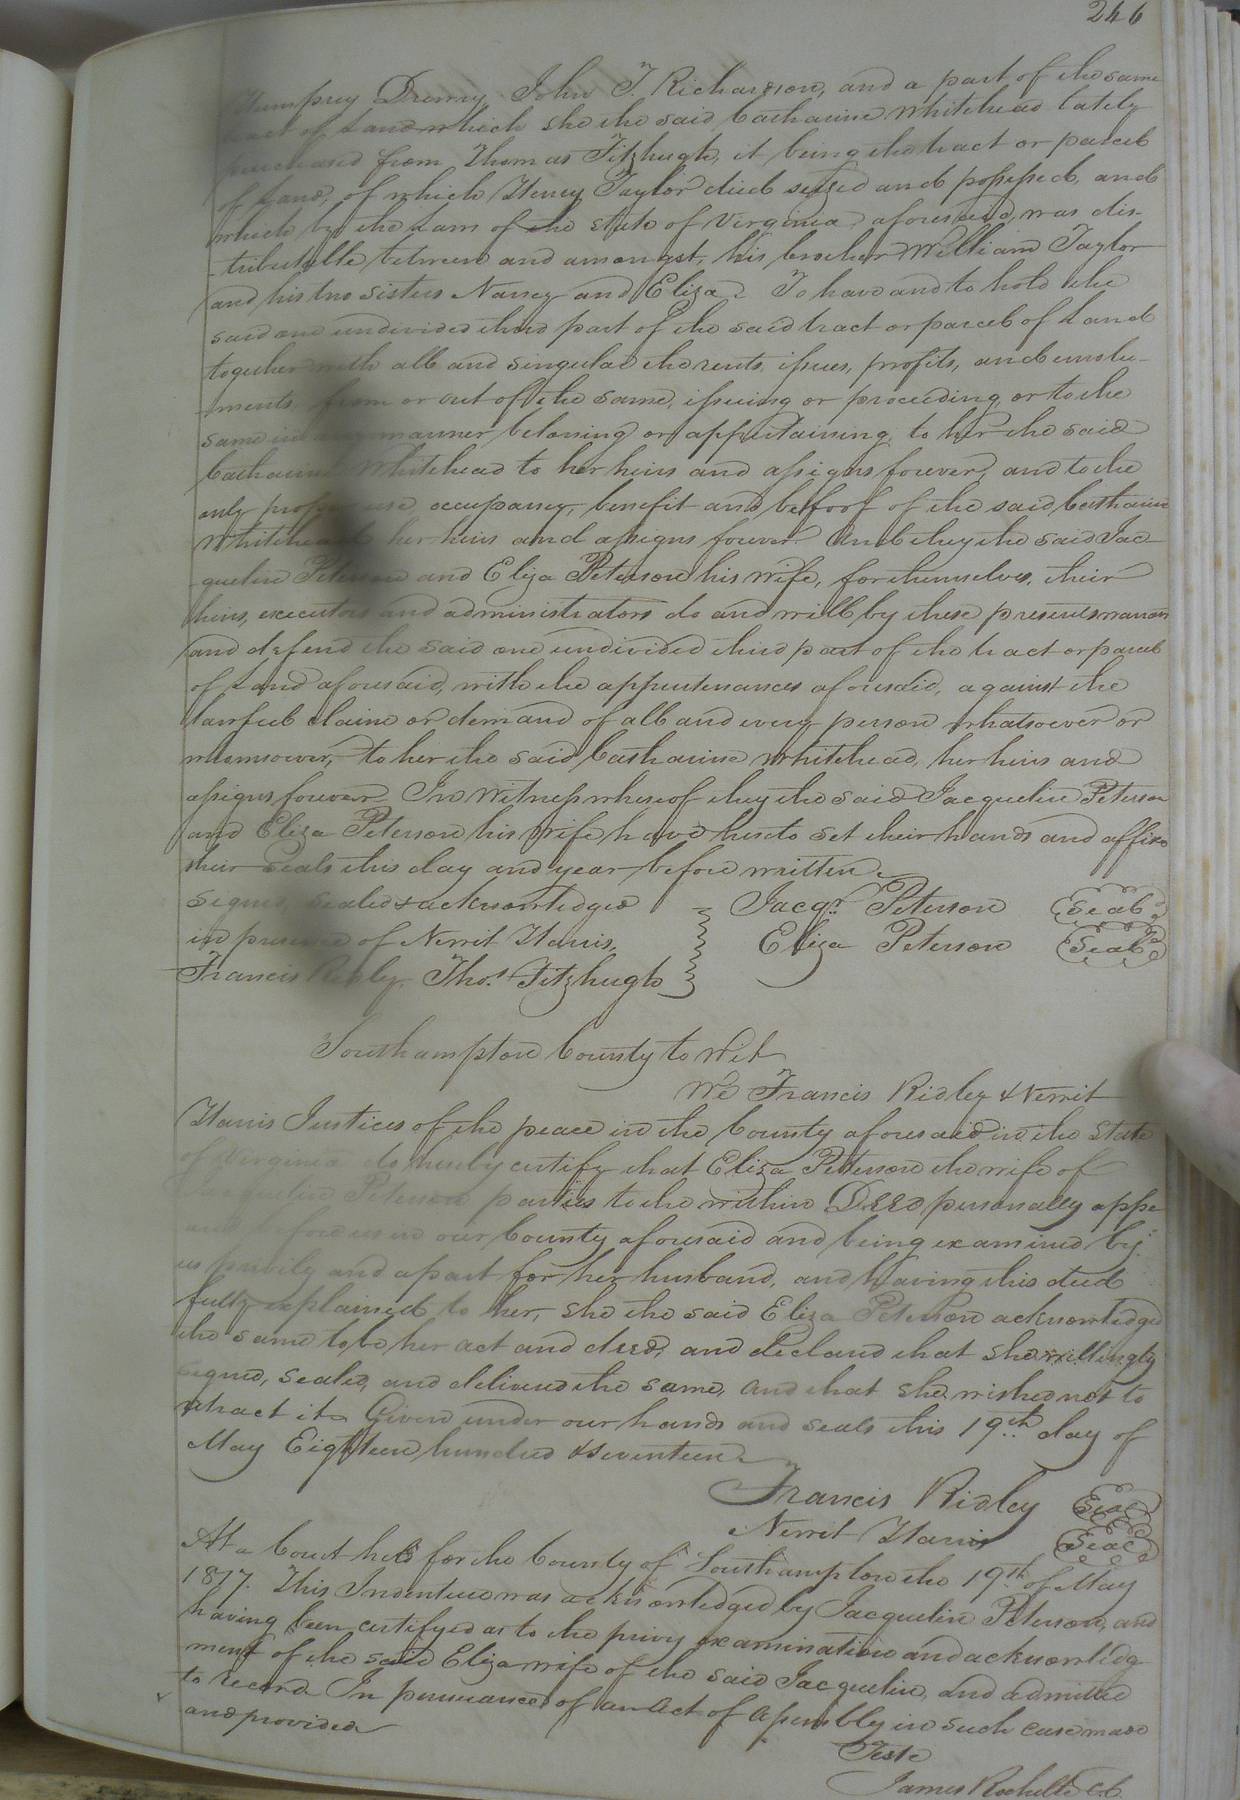 246
Humphrey Drewry, John T. Richardson, and a part of the same
tract of Land which she the said Catharine Whitehead lately
purchased from Thomas Fitzhugh, it being the tract or parcel
of Land, of which Henry Taylor died seized and possessed, and
which by the Laws of the state of Virginia aforesaid, was dis-
tributable between and amongst, his brother William Taylor
and his two sisters Nancy and Eliza. To have and to hold the
said one undivided third part of the said tract or parcel of Land
together with all and singular the rents, issues, profits, and emolu-
ments from or out of the same, issuing or proceeding or to the
same in any manner beloning or appertaining, to her the said
Catharine Whitehead to her heirs and assigns forever, and to the
only proper use, occupancy, benefit and behoof of the said Catharine
Whitehead her heirs and assigns forever. And they the said Jac-
quelin Peterson and Eliza Peterson his wife, for themselves, their
heirs, executors and administrators do and will by these presents warrant
and defend the said one undivided third part of the tract or parcel
of Land aforesaid, with the appurtenances aforesaid, against the
lawful claim or demand of all and every person whatsoever or
whomsoever, to her the said Catharine Whitehead, her heirs and
assigns forever. In Witness whereof they the said Jacquelin Peterson
and Eliza Peterson his wife have hereto set their hands and affixed
their seals this day and year before written.
Signed, sealed & acknowledged
in presence of Nerrit Harris,
Francis Ridley, Thos. Fitzhugh
Jacqn. Peterson Seal
Eliza Peterson Seal
Southampton County to Wit
We Francis Ridley & Nerrit
Harris Justices of the peace in the County aforesaid in the State
of Virginia do hereby certify that Eliza Peterson the wife of
Jacquelin Peterson parties to the within Deed personally appe
ared before us in our County aforesaid and being examined by
us privily and apart for her husband, and having this deed
fully explained to her, she the said Eliza Peterson acknowledged
the same to be her act and deed, and declared that she willingly
signed, sealed, and delivered the same, and that she wished not to
retract it. Given under our hands and seals this 19th day of
May Eighteen hundred & seventeen.
Francis Ridley Seal
Nerrit Harris Seal
At a Court held for the County of Southampton the 19th of May
1817. This Indenture was acknowledged by Jacquelin Peterson, and
having been certifyed as to the privy examination and acknowledg
ment of the said Eliza wife of the said Jacquelin, and admitted
to record In pursuance of an Act of Assembly in such case made
and provided
Teste
James Rochelle C.C.